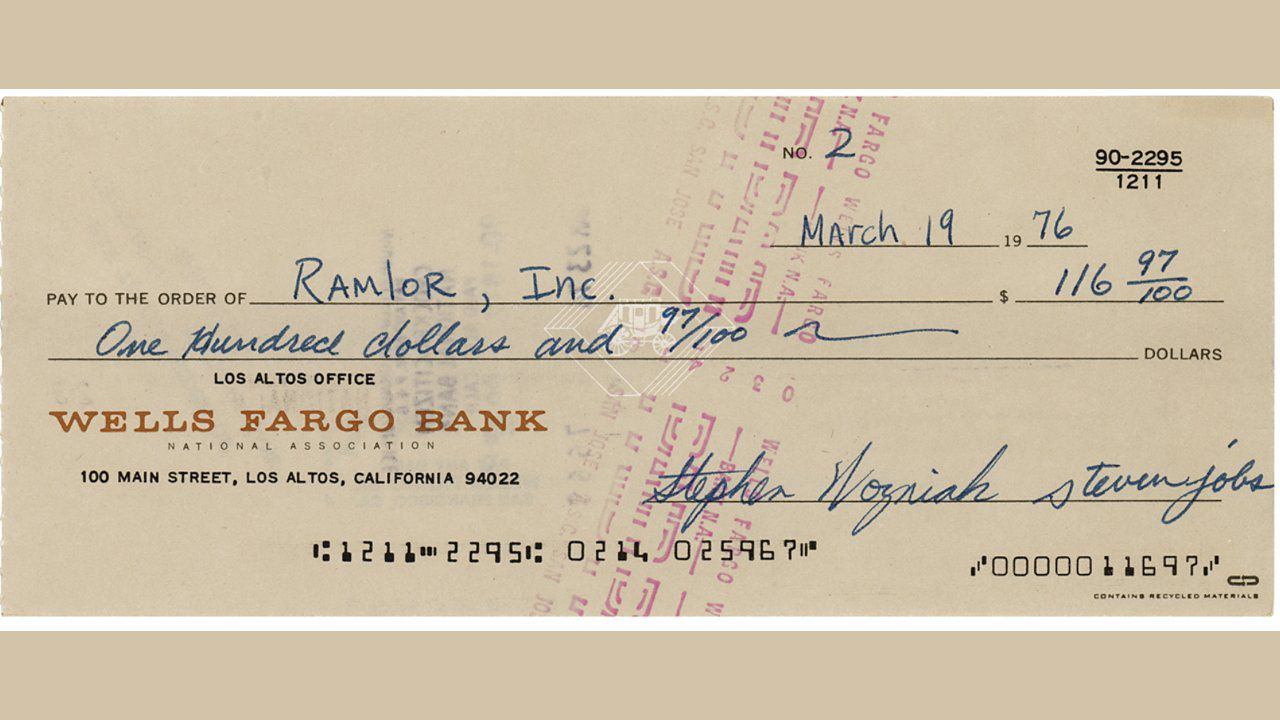 NO. 2
90-2295
1211
March 19 19 76
PAY TO THE ORDER OF Ramlor, Inc. $ 116 97/100
One Hundred dollars and 97/100 DOLLARS
LOS ALTOS OFFICE
WELLS FARGO BANK
NATIONAL ASSOCIATION
100 MAIN STREET, LOS ALTOS, CALIFORNIA 94022
Stephen Wozniak steven jobs
⑆1211⑉2295⑆ 0214 025967⑈
⑇0000011697⑇
CONTAINS RECYCLED MATERIALS